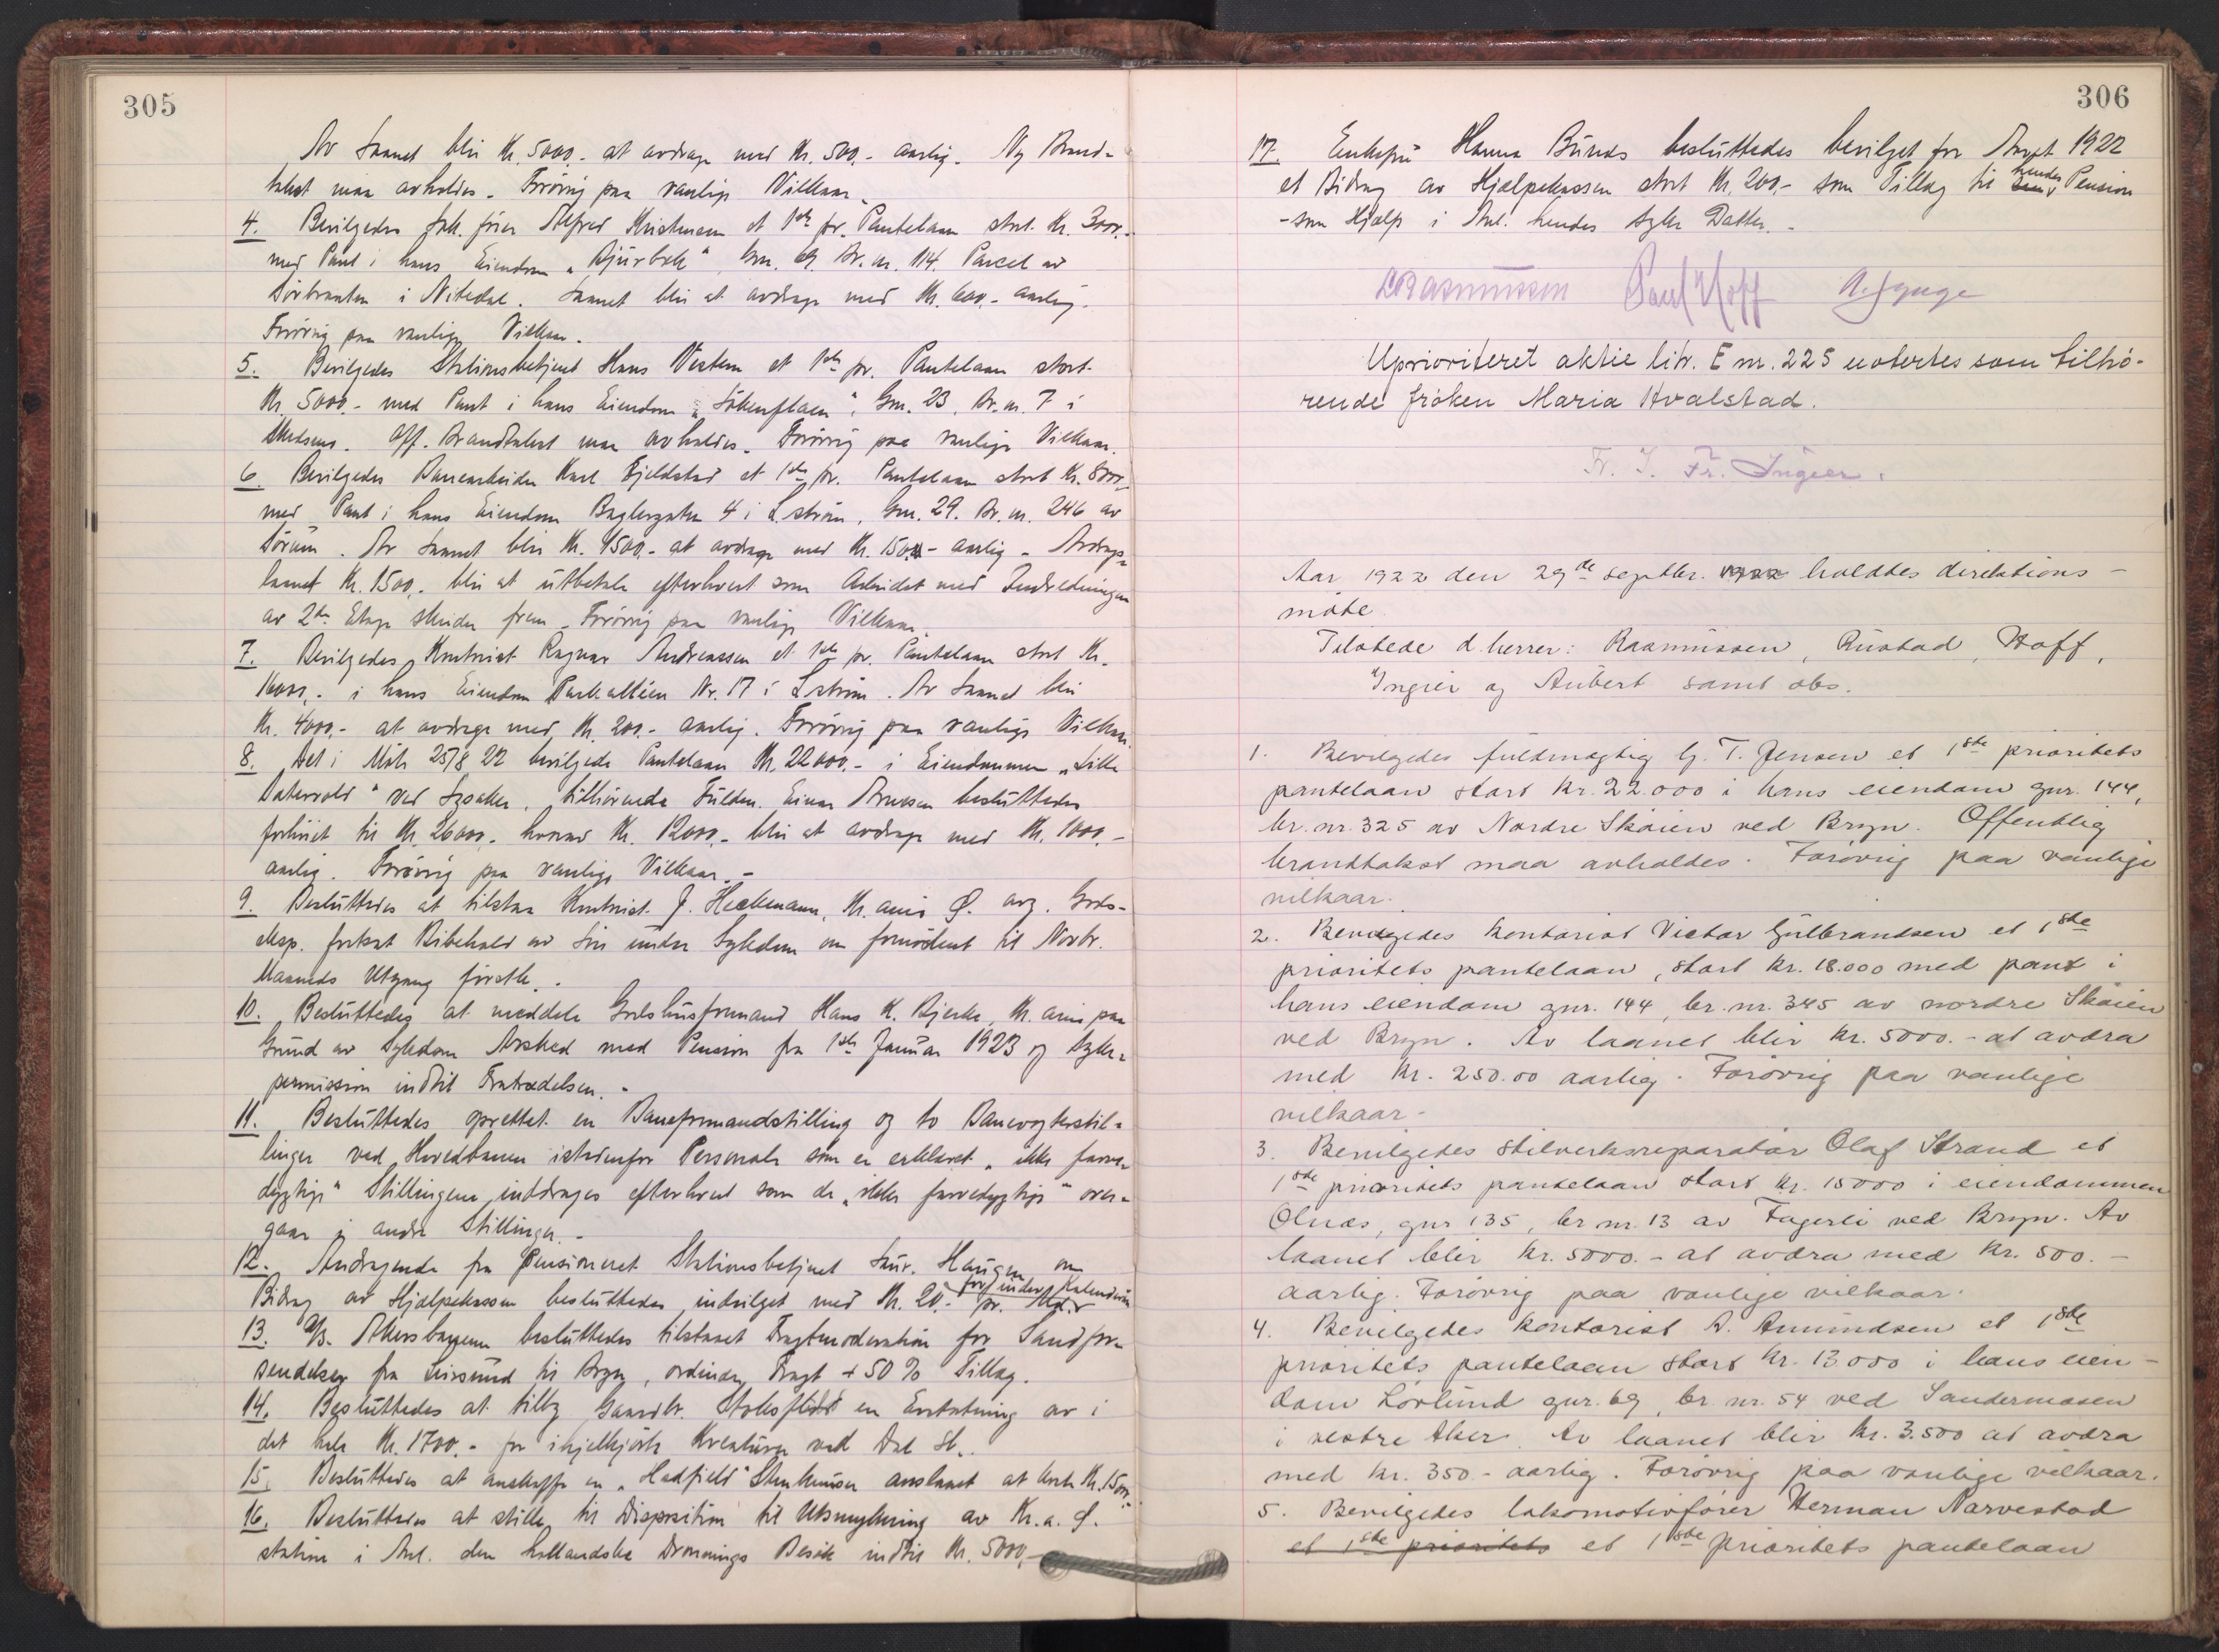 305
Av Laanet blir Kr. 5000,- at avdrage med Kr. 500,- aarlig. Ny Brand-
takst maa avholdes. Forøvrig paa vanlige Vilkaar.
4. Bevilgedes Lok. fører Alfred Kristiansen et 1ste pr. Pantelaan stort Kr. 3000,-
med Pant i hans Eiendom „Bjürbæk“, Grn. 69. Br. nr. 114. Parcel av
Sørbraaten i Nitedal. Laanet blir at avdrage med Kr. 600,- aarlig.
Forøvrig paa vanlige Vilkaar.
5. Bevilgedes Stationsbetjent Hans Vestern et 1ste pr. Pantelaan stort
Kr. 5000,- med Pant i hans Eiendom „Løkenflaen“, Grn. 23, Br. nr. 7 i
Aff. Brandtakst maa avholdes. Forøvrig paa vanlige Vilkaar.
6. Bevilgedes Banearbeider Karl Fjeldstad et 1ste pr. Pantelaan stort Kr. 8000,-
med Pant i hans Eiendom Baglergaten 4 i L.strøm, Grn. 29. Br. nr. 246 av
Sørum. Av Laanet blir Kr. 1500,- at avdrage med Kr. 150,- aarlig - Avdrags-
laanet Kr. 1500,- blir at utbetale efterhvert som Arbeidet med Indredningen
av 2den Etage skrider frem. Forøvrig paa vanlige Vilkaar.
7. Bevilgedes Kontorist Ragnar Andreassen et 1ste pr. Pantelaan stort Kr.
16000,- i hans Eiendom Parkalléen Nr. 17 i L.strøm. Av Laanet blir
Kr. 4000,- at avdrage med Kr. 200,- aarlig. Forøvrig paa vanlige Vilkaar.
8. Det i Møte 25/8 22 bevilgede Pantelaan Kr. 22000,- i Eiendommen „Lille
Sætervold“ ved Lysaker, tilhørende Fuldm. Einar Arnesen besluttedes
forhøiet til Kr. 26000,- hvorav Kr. 12000,- blir at avdrage med Kr. 1000,-
aarlig. Forøvrig paa vanlige Vilkaar. -
9. Besluttedes at tilstaa Kontorist J. Heckmann, Kr. ania Ø. ang. Gods-
eksp. fortsat Bibehold av Løn under Sygdom om fornødent til Novbr.
Maaneds Utgang førstk. -
10. Besluttedes at meddele Godshusformand Hans K. Bjerke, Kr. ania paa
Grund av Sygdom Avsked med Pension fra 1ste Januar 1923 og Syke-
permission indtil Fratrædelsen. -
11. Besluttedes oprettet en Baneformandstilling og to Banevogterstil-
linger ved Hovedbanen istedenfor Personale som er erklæret „ikke farve-
dygtige“ Stillingene inddrages efterhvert som de „ikke farvedygtige“ over-
gaar i andre Stillinger. -
12. Andragende fra Pensioneret Stationsbetjent Laur. Haugen om
Bidrag av Hjælpekassen besluttedes indvilget med Kr. 20,- for inder. Kalenderaar
13. A/S. Akersbanerne besluttedes tilstaaet Fragtmoderation for Sandfor-
sendelser fra Leirsund til Bryn, ordinær Fragt + 50 % Tillæg.
14. Besluttedes at tilby Gaardbr. Stoksflodt en Erstatning av i
det hele Kr. 1700,- for ihjelkjørte Kreaturer ved Dal St.
15. Besluttedes at anskaffe en „Hadfield“ Stenknuser anslaaet at koste Kr. 1500,-
16. Besluttedes at stille til Disposition til Utsmykning av Kr. a. Ø.
station i Anl. den hollandske Dronnings Besøk indtil Kr. 5000,-
306
17. Enkefru Hanna Bünds besluttedes bevilget for Aaret 1922
et Bidrag av Hjælpekassen stort Kr. 200,- som Tillæg til hendes Pension
- som Hjælp i Anl. hendes syke Datter. -
Rasmussen Paul Hoff
Uprioriteret aktie litr. E nr. 225 noteres som tilhø-
rende frøken Maria Hvalstad.
Fr. J. Fr. Ingier.
Aar 1922 den 29de septbr. 1922 holdtes direktions-
møte.
Tilstede d.herrer: Rasmussen, Rustad, Hoff,
Ingier og Aubert samt obs.
1. Bevilgedes fuldmægtig Hj. T. Jensen et 1ste prioritets
pantelaan stort kr. 22.000 i hans eiendom gnr. 144,
br. nr. 325 av Nordre Skøien ved Bryn. Offentlig
brandtakst maa avholdes. Forøvrig paa vanlige
vilkaar.
2. Bevilgedes kontorist Victor Gulbrandsen et 1ste
prioritets pantelaan, stort kr. 18.000 med pant i
hans eiendom gnr. 144, br. nr. 345 av nordre Skøien
ved Bryn. Av laanet blir kr. 5000.- at avdra
med kr. 250.00 aarlig. Forøvrig paa vanlige
vilkaar.
3. Bevilgedes stilverksreparatør Olaf Strand et
1ste prioritets pantelaan stort kr. 15000 i eiendommen
Olnæs, gnr 135, br nr. 13 av Fagerli ved Bryn. Av
laanet blir kr. 5000.- at avdra med kr. 500.-
aarlig. Forøvrig paa vanlige vilkaar.
4. Bevilgedes kontorist A. Amundsen et 1ste
prioritets pantelaan stort kr. 13.000 i hans eien-
dom Lørlund gnr. 69, br. nr. 54 ved Sandermosen
i vestre Aker. Av laanet blir kr. 3.500 at avdra
med kr. 350.- aarlig. Forøvrig paa vanlige vilkaar.
5. Bevilgedes lokomotivfører Herman Narvestad
et 1ste prioritets et 1ste prioritets pantelaan